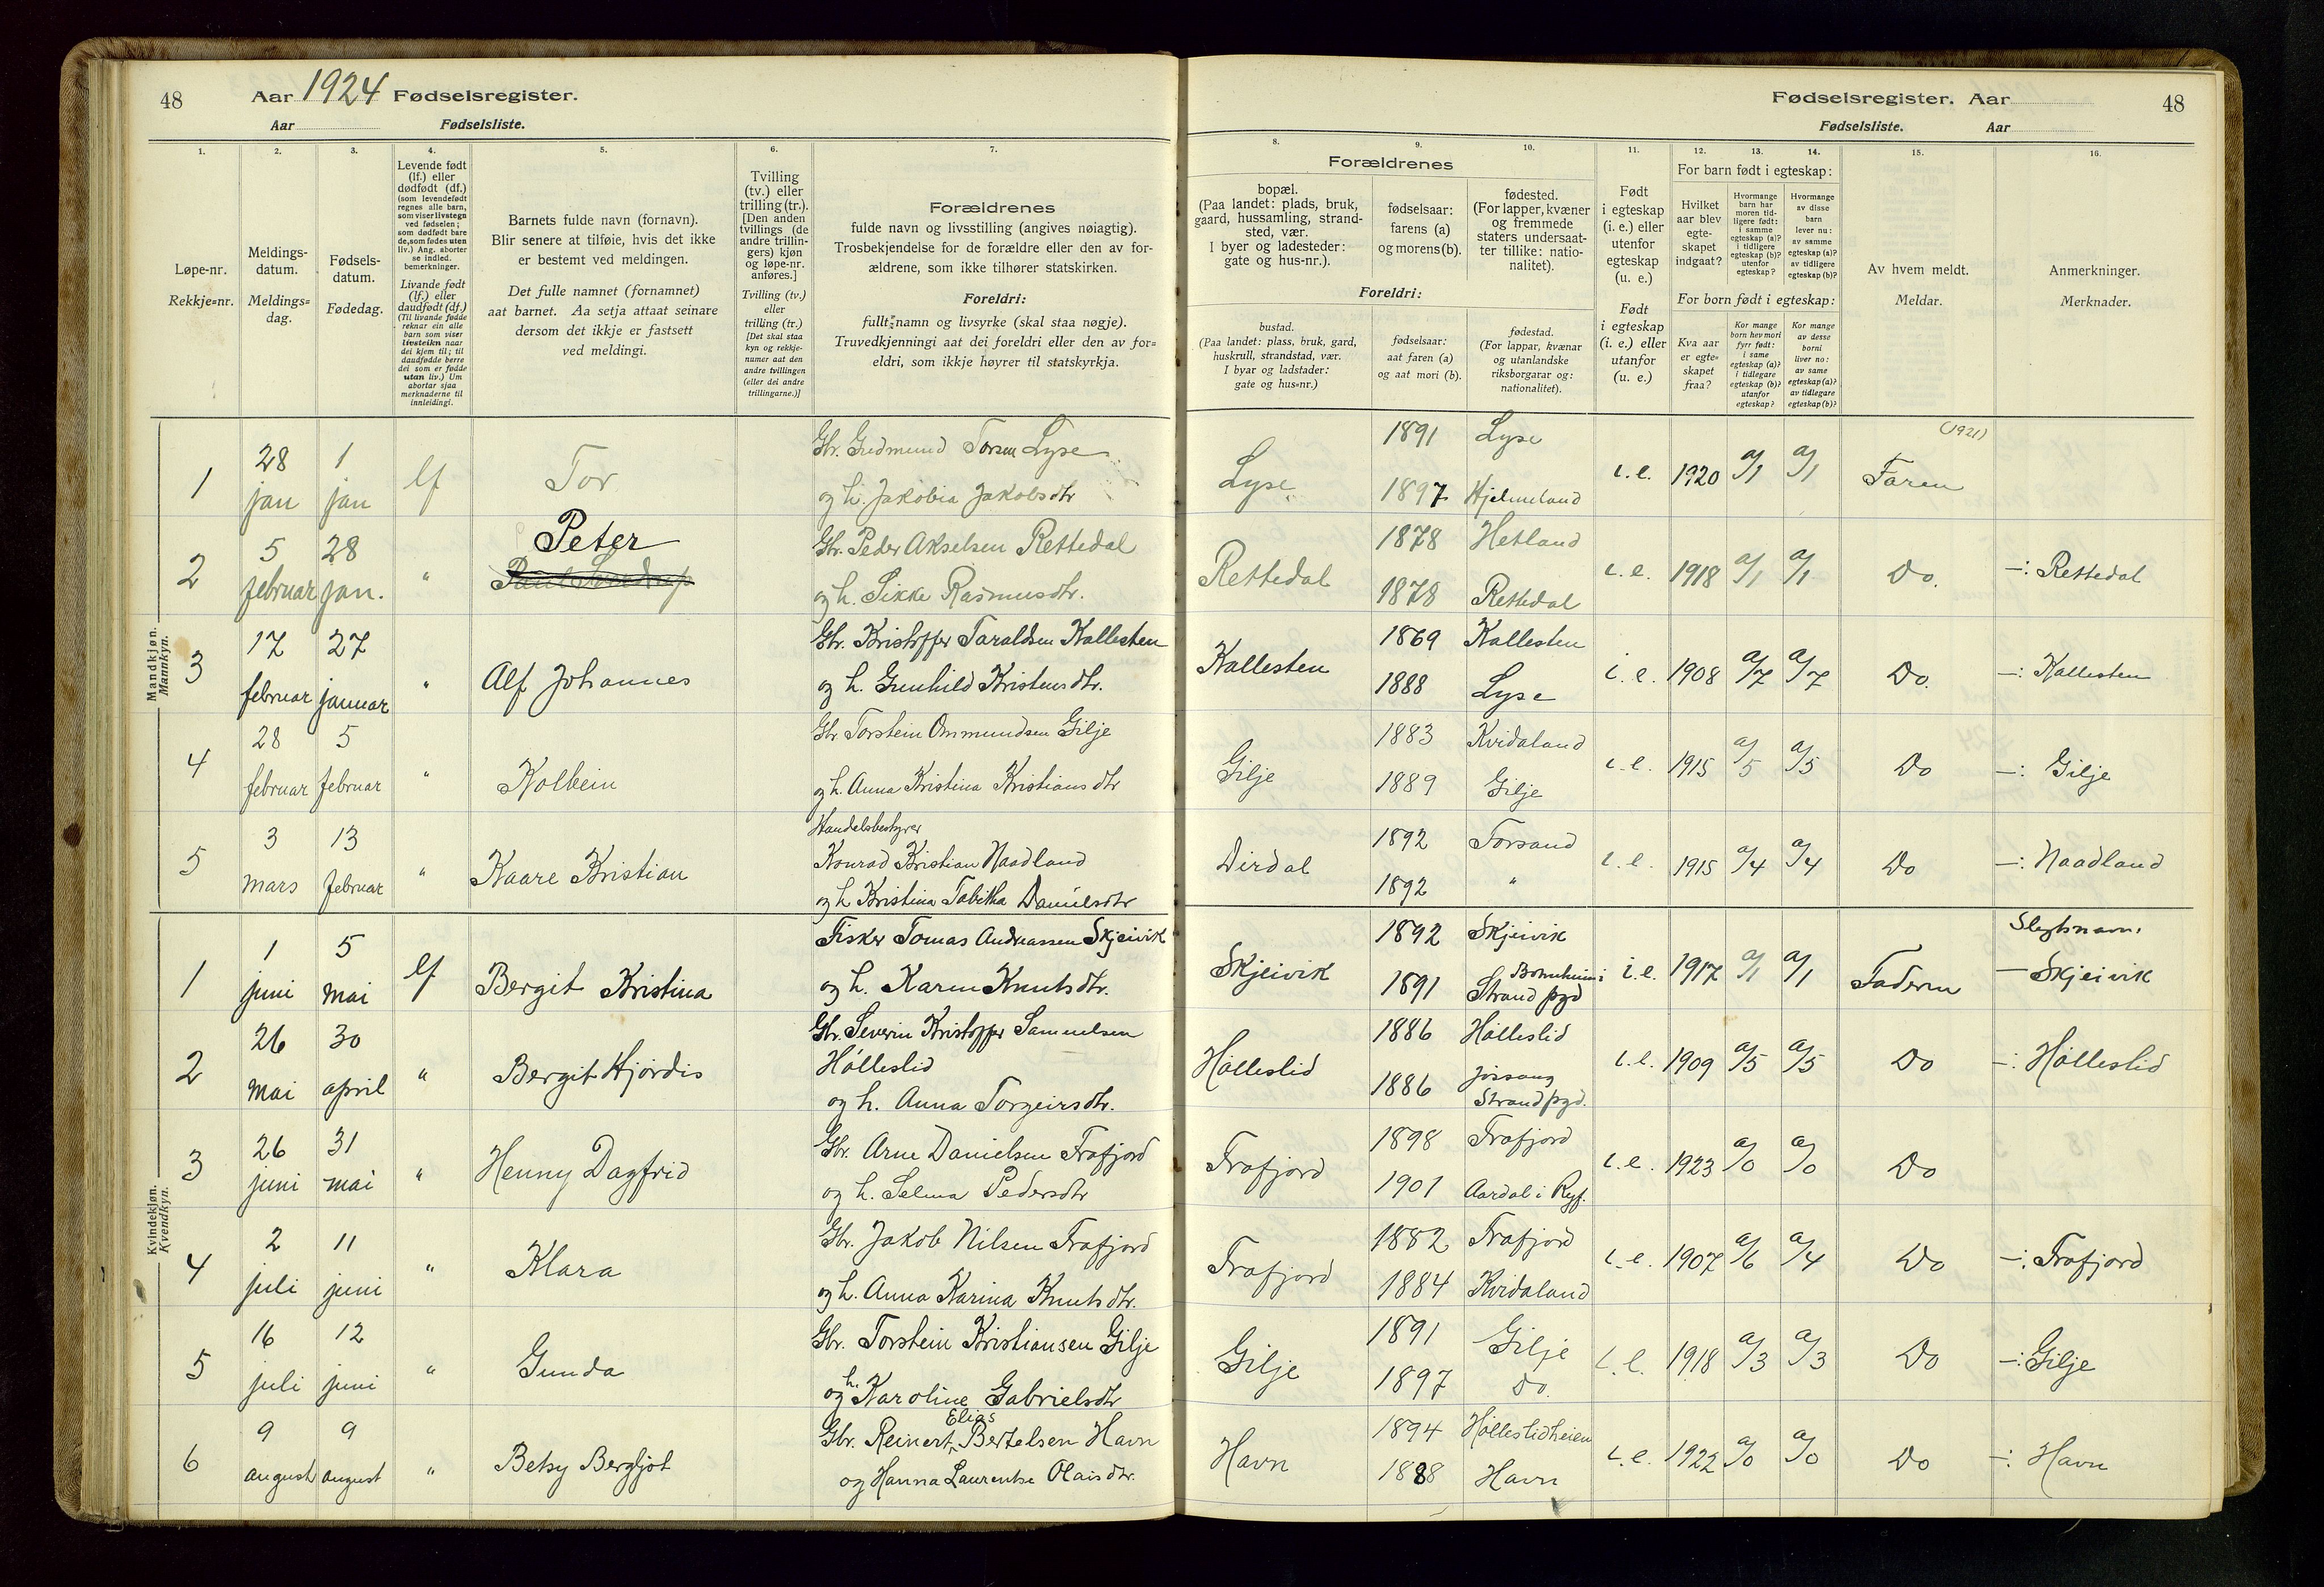 48
Aar 1924 Fødselsregister.
Aar Fødselsliste.
1.
2.
3.
4.
5.
6.
7.
Løpe-nr.
Rekkje=nr.
Meldings-
datum.
Meldings=
dag.
Fødsels-
datum.
Fødedag.
Levende født
(lf.) eller
dødfødt (df.)
(som levendefødt
regnes alle barn,
som viser livstegn
ved fødselen;
som dødfødt bare
de, som fødes uten
liv.) Ang. aborter
se indled.
bemerkninger.
Livande født
(lf.) eller
daudfødt (df.)
(Til livande fødde
reknar ein alle
barn som viser
livsteikn naar
dei kjem til; til
daudfødde berre
dei som er fødde
utan liv.) Um
abortar sjaa
merknaderne til
innleidingi.
Barnets fulde navn (fornavn).
Blir senere at tilføie, hvis det ikke
er bestemt ved meldingen.
Det fulle namnet (fornamnet)
aat barnet. Aa setja attaat seinare
dersom det ikkje er fastsett
ved meldingi.
Tvilling
(tv.) eller
trilling (tr.).
[Den anden
tvillings (de
andre trillin-
gers) kjøn
og løpe-nr.
anføres.]
Tvilling (tv.)
eller
trilling (tr.)
[Det skal staa
kyn og rekkje-
numer aat den
andre tvillingen
(eller dei andre
trillingarne.)]
Forældrenes
fulde navn og livsstilling (angives nøiagtig).
Trosbekjendelse for de forældre eller den av for-
ældrene, som ikke tilhører statskirken.
Foreldri:
fullt namn og livsyrke (skal staa nøgje).
Truvedkjenningi aat dei foreldri eller den av for=
eldri, som ikkje høyrer til statskyrkja.
Mandkjøn.
Mannkyn.
1 28 jan 1 jan lf Tor
Gbr. Gudmund Torsen Lyse
og h. Jakobia Jakobsdtr
2 5 februar 28 jan. " Peter
Gbr. Peder Akselsen Rettedal
og h. Sikke Rasmusdtr.
3 17 februar 27 januar " Alf Johannes
Gbr. Kristoffer Taraldsen Kallesten
og h. Gunhild Kristensdtr.
4 28 februar 5 februar " Kolbein
Gbr Torstein Ommundsen Gilje
og h. Anna Kristina Kristiansdtr
5 3 mars 13 februar " Kaare Kristian
Handelsbestyrer
Konrad Kristian Naadland
og h Kristina Tabitha Danielsdtr
Kvindekjøn.
Kvendkyn.
1 1 juni 5 mai lf Bergit Kristina
Fisker Tomas Andreassen Skjeivik
og h. Karen Knutsdtr.
2 26 mai 30 april " Bergit Hjørdis
Gbr. Severin Kristoffer Samuelsen
Hølleslid
og h. Anna Torgeirsdtr.
3 26 juni 31 mai " Henny Dagfrid
Gbr. Arne Danielsen Frafjord
og h. Selma Pedersdtr
4 2 juli 11 juni " Klara
Gbr. Jakob Nilsen Frafjord
og h. Anna Karina Knutsdtr.
5 16 juli 12 juni " Gunda
Gbr. Torstein Kristiansen Gilje
og h. Karoline Gabrielsdtr
6 9 august 9 august " Betsy Bergljot
Elias
Gbr. Reinert Bertelsen Havn
og Hanna Laurentse Olaisdtr.
Fødselsregister. Aar
48
Fødselsliste. Aar
8.
9.
10.
11.
12.
13.
14.
15.
16.
Forældrenes
bopæl.
(Paa landet: plads, bruk,
gaard, hussamling, strand-
sted, vær.
I byer og ladesteder:
gate og hus-nr.).
fødselsaar:
farens (a)
og morens (b).
fødested.
(For lapper, kvæner
og fremmede
staters undersaat-
ter tillike: natio-
nalitet).
Foreldri:
bustad.
(Paa landet: plass, bruk, gard,
huskrull, strandstad, vær.
I byar og ladstader:
gate og hus=nr.)
fødselsaar:
aat faren (a)
og aat mori (b).
fødestad.
(For lappar, kvænar
og utanlandske
riksborgarar og:
nationalitet).
Født
i egteskap
(i. e.) eller
utenfor
egteskap
(u. e.)
Født
i egteskap
(i. e.) eller
utanfor
(u. e.)
For barn født i egteskap:
Hvilket
aar blev
egte-
skapet
indgaat?
Hvormange
barn har
moren tid-
ligere født:
i samme
egteskap (a)?
i tidligere
egteskap (b)?
utenfor
egteskap?
Hvormange
av disse
barn
lever nu:
av samme
egteskap (a)?
av tidligere
egteskap (b)?
For born født i egteskap:
Kva aar
er egte=
skapet
fraa?
Kor mange
born hev mori
fyrr født:
i same
egteskap (a)?
i tidlegare
egteskap (b)?
utanfor
egteskap?
Kor mange
av desse
borni
liver no:
av same
egteskap (a)?
av tidlegare
egteskap (b)?
Av hvem meldt.
Meldar.
Anmerkninger.
Merknader.
(1921)
Lyse 1891 Lyse i.e. 1920 a/1 a/1 Faren
1897 Hjelmeland
Rettedal 1878 Hetland i.e. 1918 a/1 a/1 Do. —: Rettedal
1878 Rettedal
Kallesten 1869 Kallesten i.e. 1908 a/7 a/7 Do. —: Kallesten
1888 Lyse
Gilje 1883 Kvidaland i.e. 1915 a/5 a/5 Do —: Gilje
1889 Gilje
Dirdal 1892 Forsand i.e. 1915 a/4 a/4 Do —: Naadland
1892 "
Slegtsnavn:
Skjeivik 1892 Skjeivik i.e. 1917 a/1 a/1 Faderen — Skjeivik
1891 Strand pgd
Hølleslid 1886 Hølleslid i.e. 1909 a/5 a/5 Do —: Hølleslid
1886 Jøssang
Strand pgd.
Frafjord 1898 Frafjord i.e. 1923 a/0 a/0 Do
1901 Aardal i Ryf.
Frafjord 1882 Frafjord i.e. 1907 a/6 a/4 Do —: Frafjord
1884 Kvidaland
Gilje 1891 Gilje i.e. 1918 a/3 a/3 Do —: Gilje
1897 Do.
Havn 1894 Hølleslidheien i.e. 1922 a/0 a/0 Do —: Havn
1888 Havn